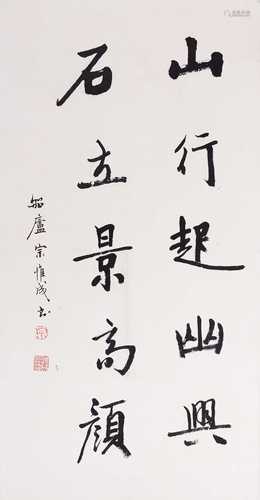 山行起幽興
石立景高顏
宗惟成书